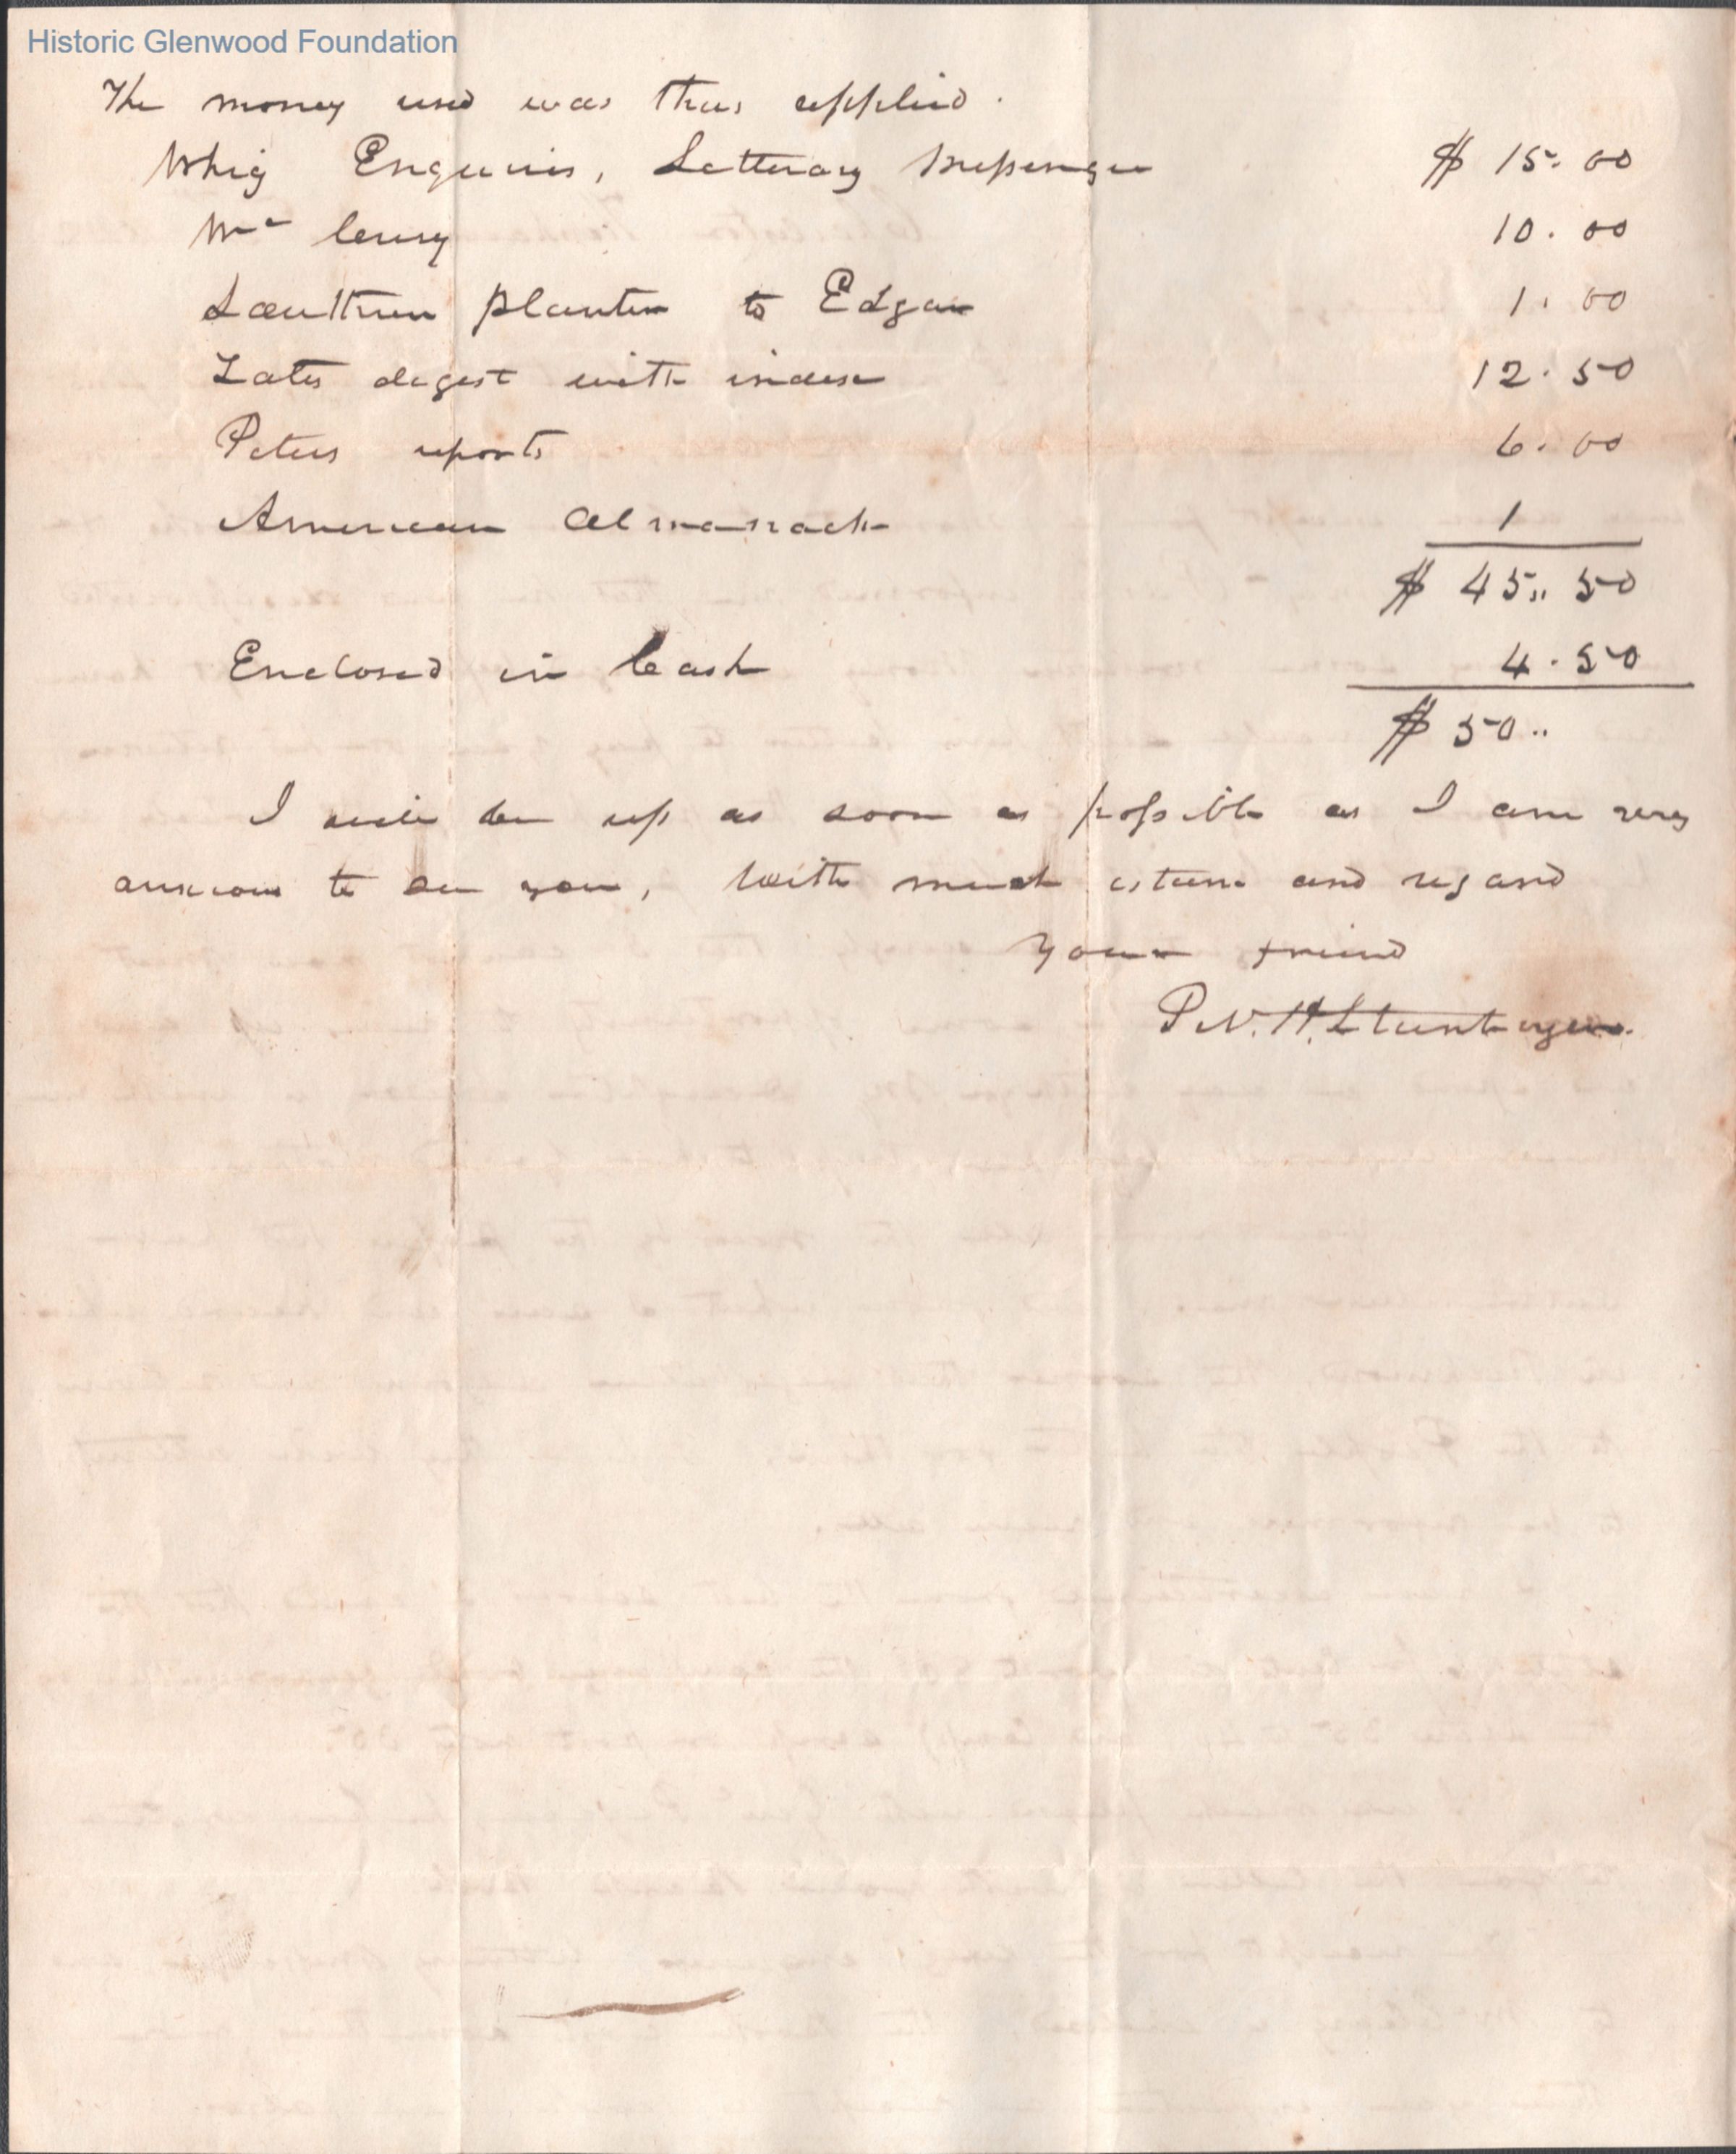 Historic Glenwood Foundation
The money used was thus applied.
Whig Enquirer, Litterary Messenger $ 15.00
Mc 10.00
Southern planter to Edgar 1.00
Tates digest with index 12.50
Peters reports 6.00
American Almanack 1
$ 45,,50
Enclosed in Cash 4.50
$ 50..
I will be up as soon as possible as I am very
anxious to see you, With much esteem and regard
Your friend